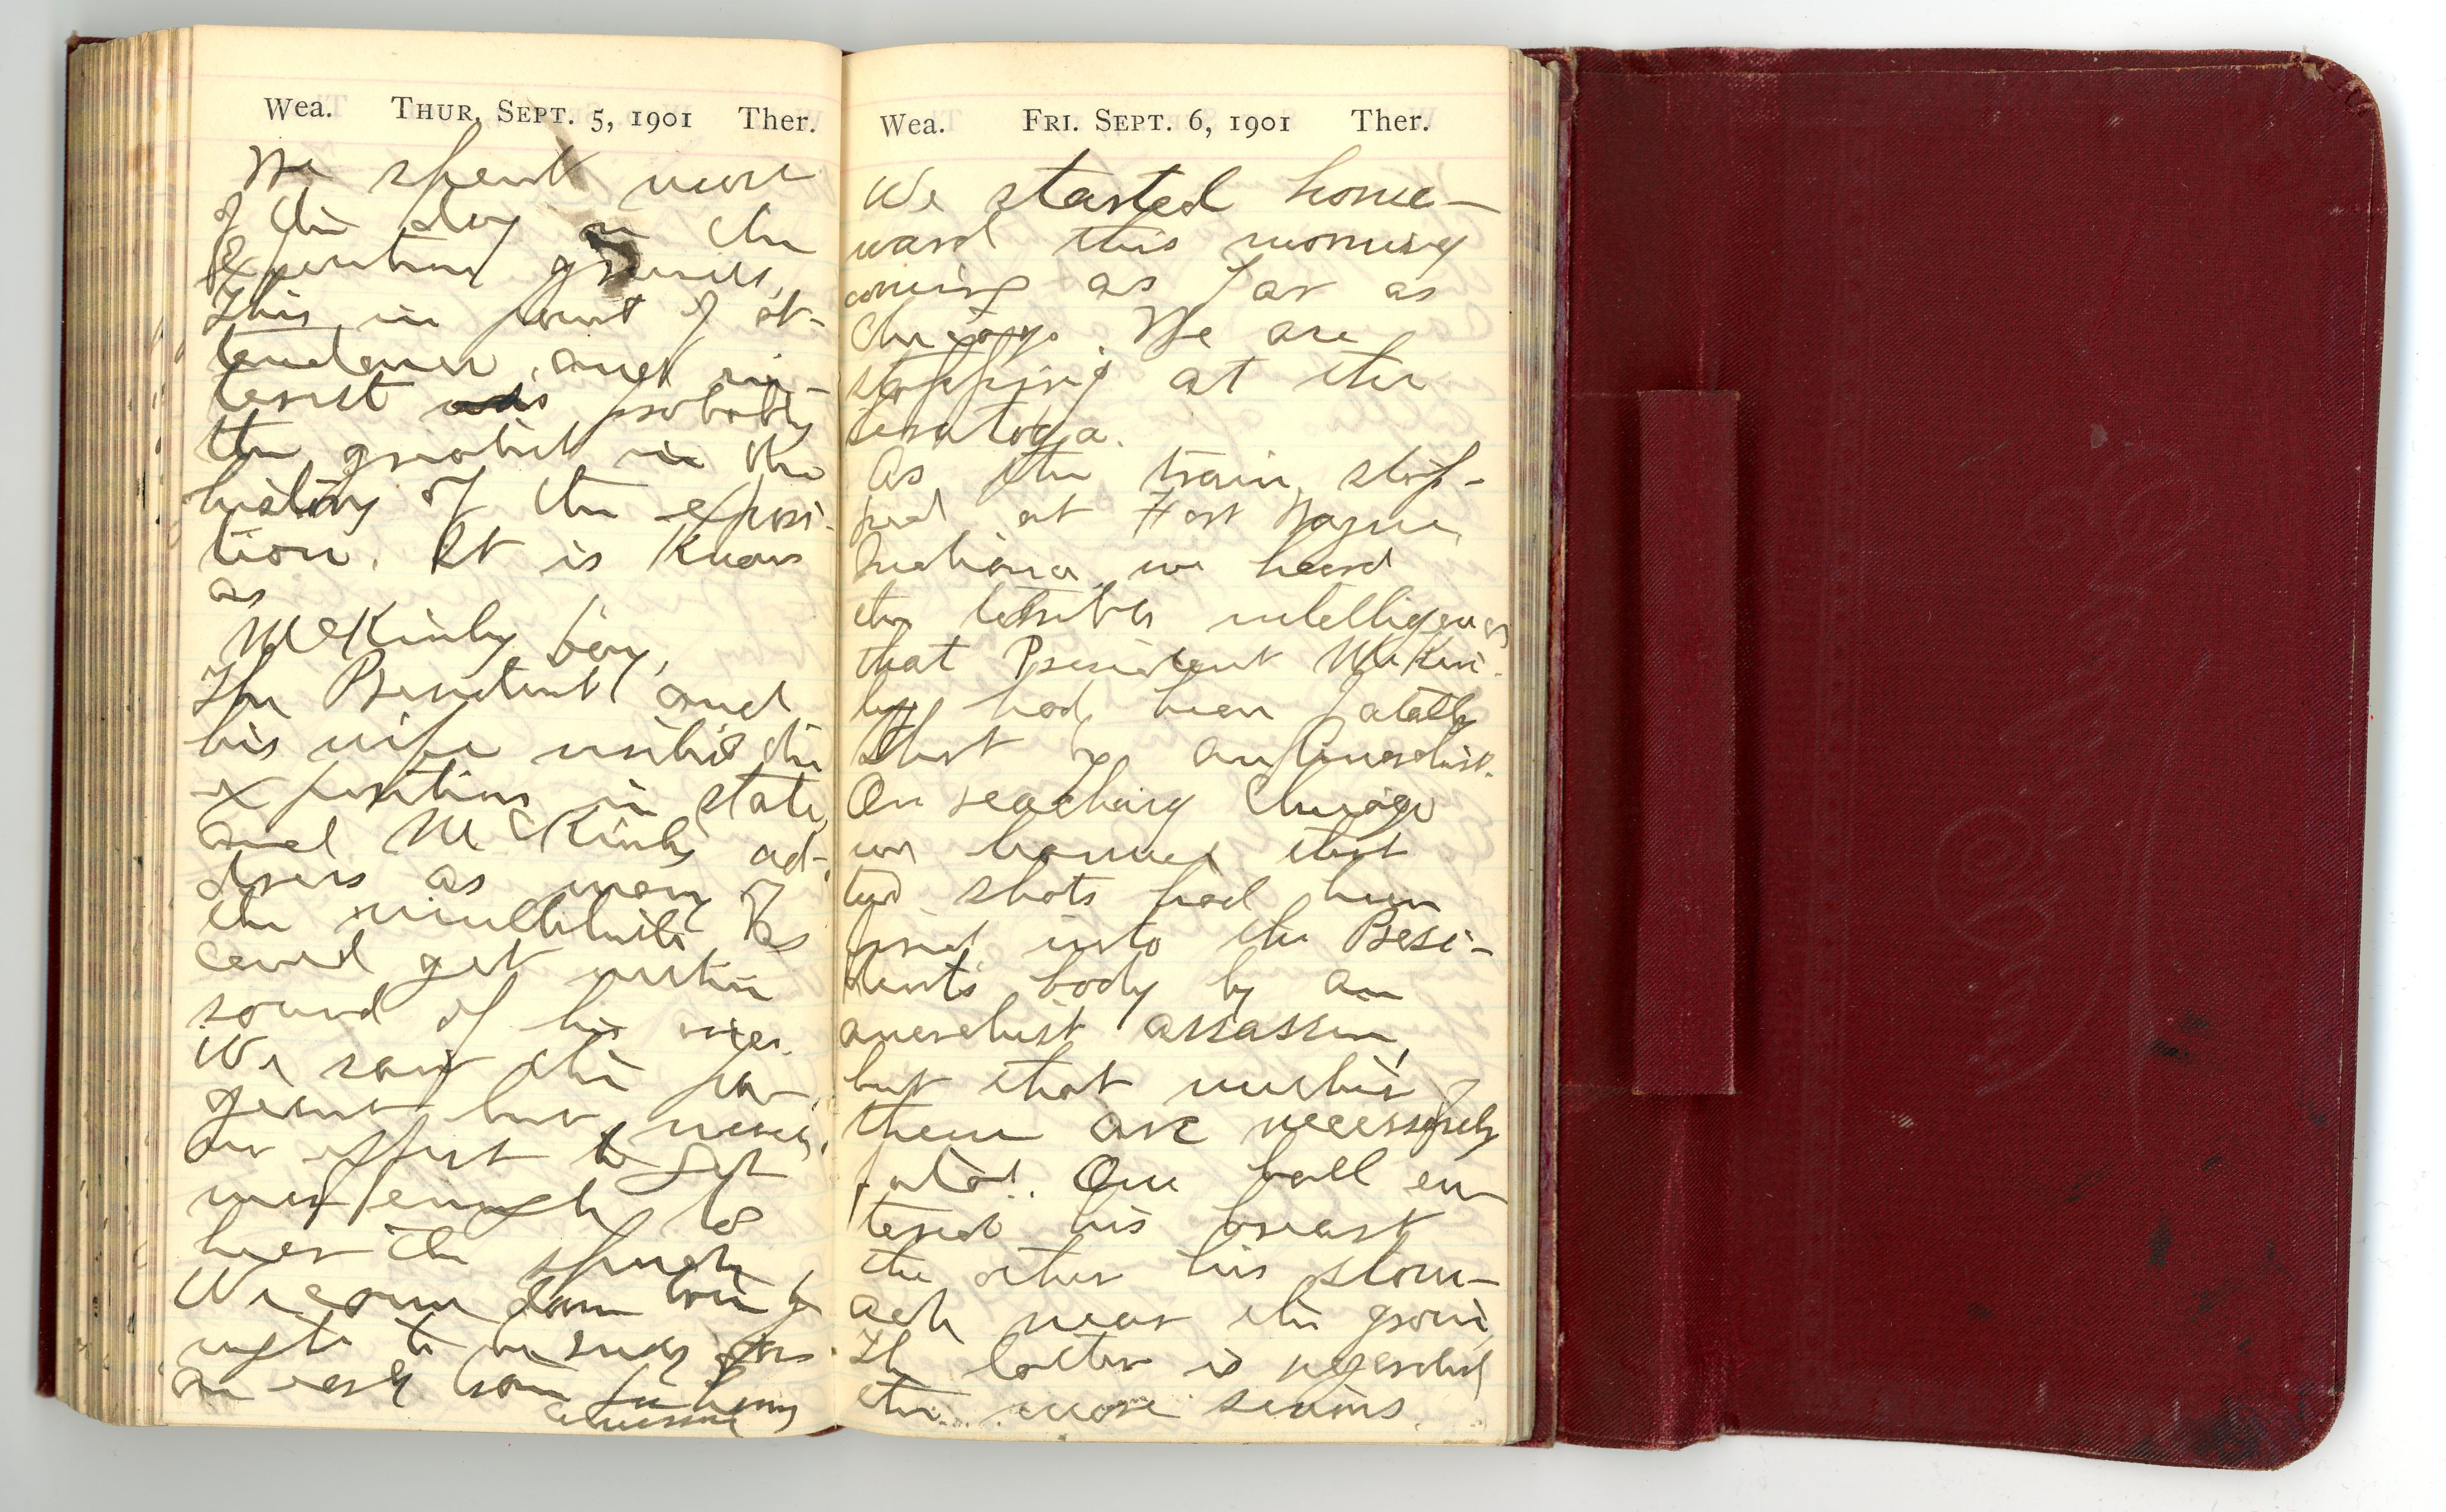 Wea. THUR. SEPT. 5, 1901 Ther.
We spent most
of the day on the
Exposition grounds.
This in point of at-
tendance and in-
terest was probably
the greatest in the
history of the exposi-
tion. It is known
as
McKinley Day.
The President and
his wife visited the
exposition in state,
and McKinley ad-
dress as many of
the multitude as
could get within
sound of his voice.
We saw the pa-
geant but never
an effort to get
near enough to
hear the speech
We came down town
night to
an early train
Wea. FRI. SEPT. 6, 1901 Ther.
We started home-
ward this morning
coming as far as
Chicago. We are
stopping at the
Saratoga.
As the train stop-
ped at Fort Wayne,
Indiana, we heard
the terrible intelligence
that President McKin-
ley had been fatally
shot by an Anarchist.
On reaching Chicago
we learned that
two shots had been
fired into the Presi-
dent's body by an
anarchist assassin,
but that neither of
them are necessarily
fatal. One ball en-
tered his breast
the other his stom-
ach near the groin,
The latter is regarded
the more serious.